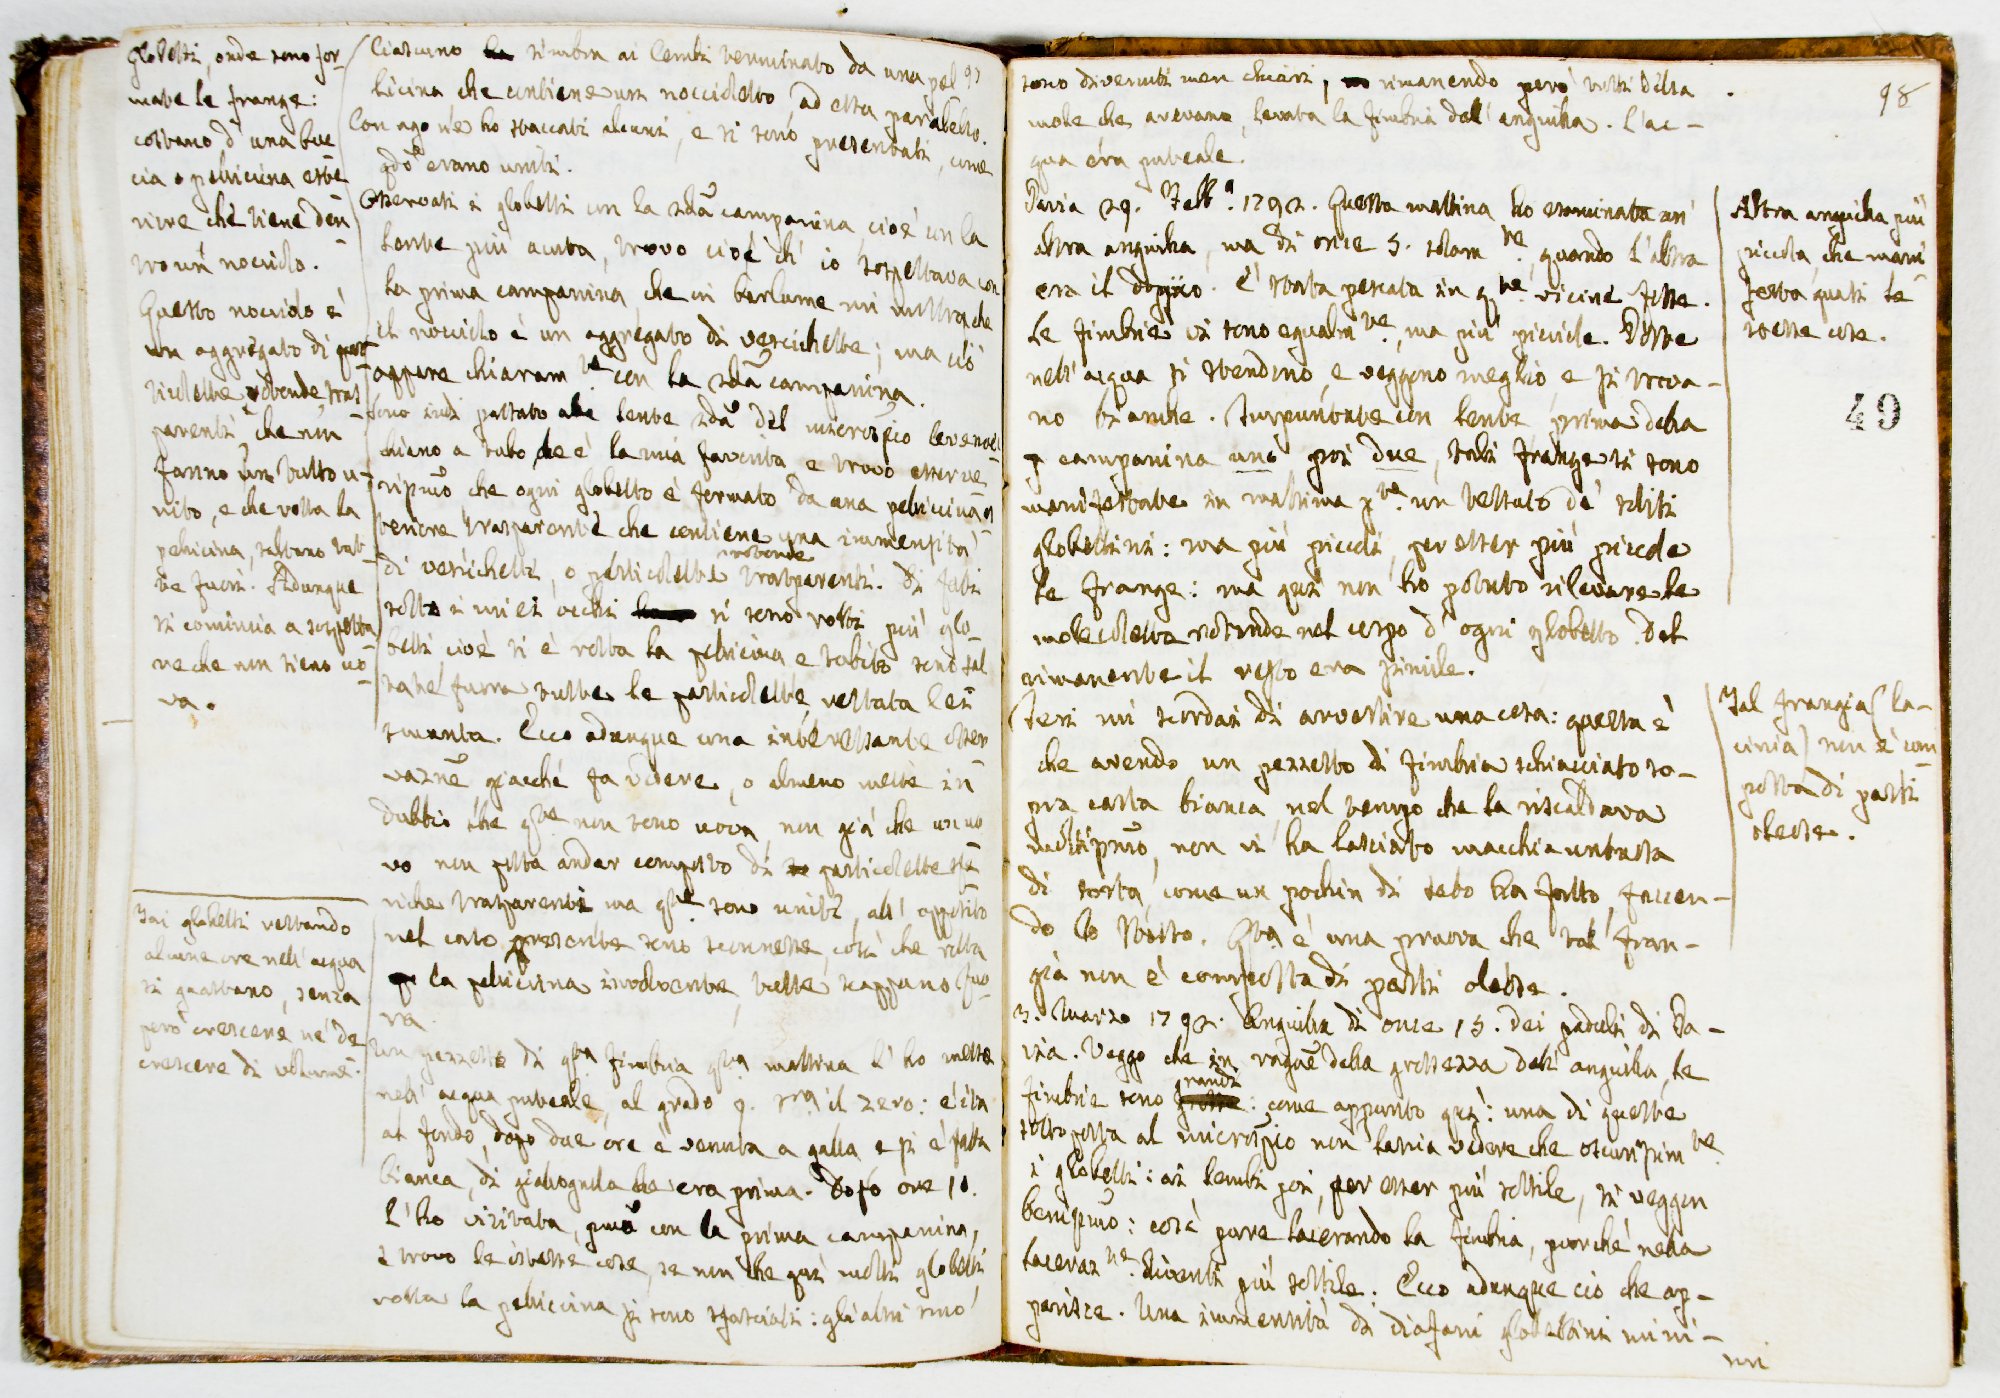 globetti, onde sono for-
mate le frange:
costano d'una buc
cia o pellicina este
riore che tiene den
tro un nocciolo.
Questo nocciolo è
un aggregato di part
ticelle rotonde, tras
parenti che non
fanno un tutto u-
nito, e che rotta la
pellicina, saltano tut
te fuori. Adunque
si comincia a sospetta
re che non sieno uo-
va.
Tai globetti restando
alcune ore nell'acqua
si guastano, senza
però crescere, nè de
crescere di volume.
97
Ciascuno sembra ai lembi terminato da una pel
licina che contiene un noccioletto ad essa parallelo.
Con ago ne ho staccati alcuni, e si sono presentati, come
qdo erano uniti.
Osservati i globetti con la 2da campanina, cioè con la
lente più acuta, trovo ciò ch'io sospettava con
la prima campanina che in barlume mi mostra che
il nocciolo è un aggregato di vescichette; ma ciò
appare chiaram.te con la 2da campanina.
Sono indi passato alla lente 2da del microspio levenoec
chiano a tubo, che è la mia favorita, e trovo esser ve
rissimo che ogni globetto è formato da una pellicina es
teriore trasparente che contiene una immensità
di vescichetti, o particolette rotonde trasparenti. Di fatti
sotto i miei occhi si sono rotti più glo-
betti, cioè si è rotta la pellicina e subito sono sal
tate fuora tutte le particolette, restata lei
smunta. Ecco adunque una interessante osser
vazne giacchè fa vedere, o almeno mette in
dubbio che qste non sono uova, non già che un uo
vo non possa andar composto di particolette sfe
riche trasparenti ma qste sono unite, all'opposito
nel caso presente sono sconnesse, così che rotta
la pellicina involvente, tutte scappano fuo-
ra.
Un pezzetto di qsta fimbria qsta mattina l'ho messo
nell'acqua puteale, al grado 9. sopra il zero: è ita
al fondo, dopo due ore è venuta a galla e si è fatta
bianca, di giallognola che era prima. Dopo ore 10.
l'ho visitata, pure con la prima campanina,
e trovo le istesse cose, se non che quì molti globetti
rotta la pellicina si sono sfasciati: gli altri sono
98
sono divenuti men chiari, rimanendo però tutti della
mole che avevano, levata la fimbria dall'anguilla. L'ac-
qua era puteale.
Pavia 29. Febb.o 1792. Questa mattina ho esaminata un'
altra anguilla, ma di once 5. solam.te, quando l'altra
era il doppio. È stata pescata in q.te vicine fosse.
Le fimbrie vi sono egualm.te, ma più picciole. Poste
nell'acqua si stendono, e veggono meglio e si trova-
no bianche. Spuntate con lente prima della
campanina una, poi due, tali frange si sono
manifestate in massima p.te un tessuto de' soliti
globettini: ma più piccoli, per esser più piccole
le frange: ma quì non ho potuto rilevare le
molecolette rotonde nel corpo d'ogni globetto. Del
rimanente il resto era simile.
Jeri mi scordai di avvertire una cosa: questa è
che avendo un pezzetto di fimbria schiacciato so-
pra carta bianca, nel tempo che la riscaldava
moltissimo, non vi ha lasciato macchia untuosa
di sorta, come un pochin di sebo ha fatto facen-
do lo stesso. Qsta è una pruova che tal fran-
gia non è composta di parti oleose.
3. Marzo 1792. Anguilla di once 15. dei paduli di Pa-
via. Veggo che in ragne della grossezza dell'anguilla, le
fimbrie sono grandi: come appunto quì: una di queste
sottoposta al microspio non lascia vedere che oscurissim.te
i globetti: ai lembi poi, per esser più sottile, si veggon
benissimo: così pure lacerando la fimbria, purchè nella
laceraz.ne diventi più sottile. Ecco adunque ciò che ap-
parisce. Una immensità di diafani globettini mini-
mi
Altra anguilla più
piccola, che mani
festa quasi le
stesse cose.
49
Tal frangia (la-
cinia) non è com
posta di parti
oleose.